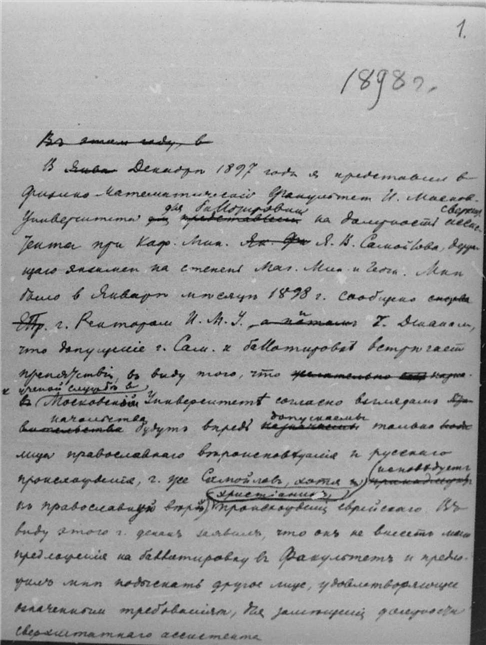 1.
1898 г.
Въ этомъ году, в
В Янва Декабре 1897 года я представил в
Физико-Математический Факультет И. Москов.
Университета для баллотировки на должность сверхш.
ассистента при Каф. Мин. Я. В. Самойлова, держа
щего экзамен на степень Маг. Мин. и Геогн. Мне
было в Январе месяце 1898 г. сообщено сперва
г. Ректором И. М. У., а потом г. Деканом,
что допущение г. Сам. к баллотировке встречает
препятствие, в виду того, что
к ученой службе в
в Московском Университете согласно взглядам
начальства допускаемы
будут впредь назначаемы только
лица православного вероисповедания и русского
происхождения, г. же Самойлов, хотя и исповедует
христианин
православную веру, происхождения еврейского. В
виду этого г. декан заявил, что он не внесет мое
предложение на баллотировку в Факультет и предло-
жил мне подыскать другое лицо, удовлетворяющее
означенным требованиям, для замещения должности
сверхштатного ассистента